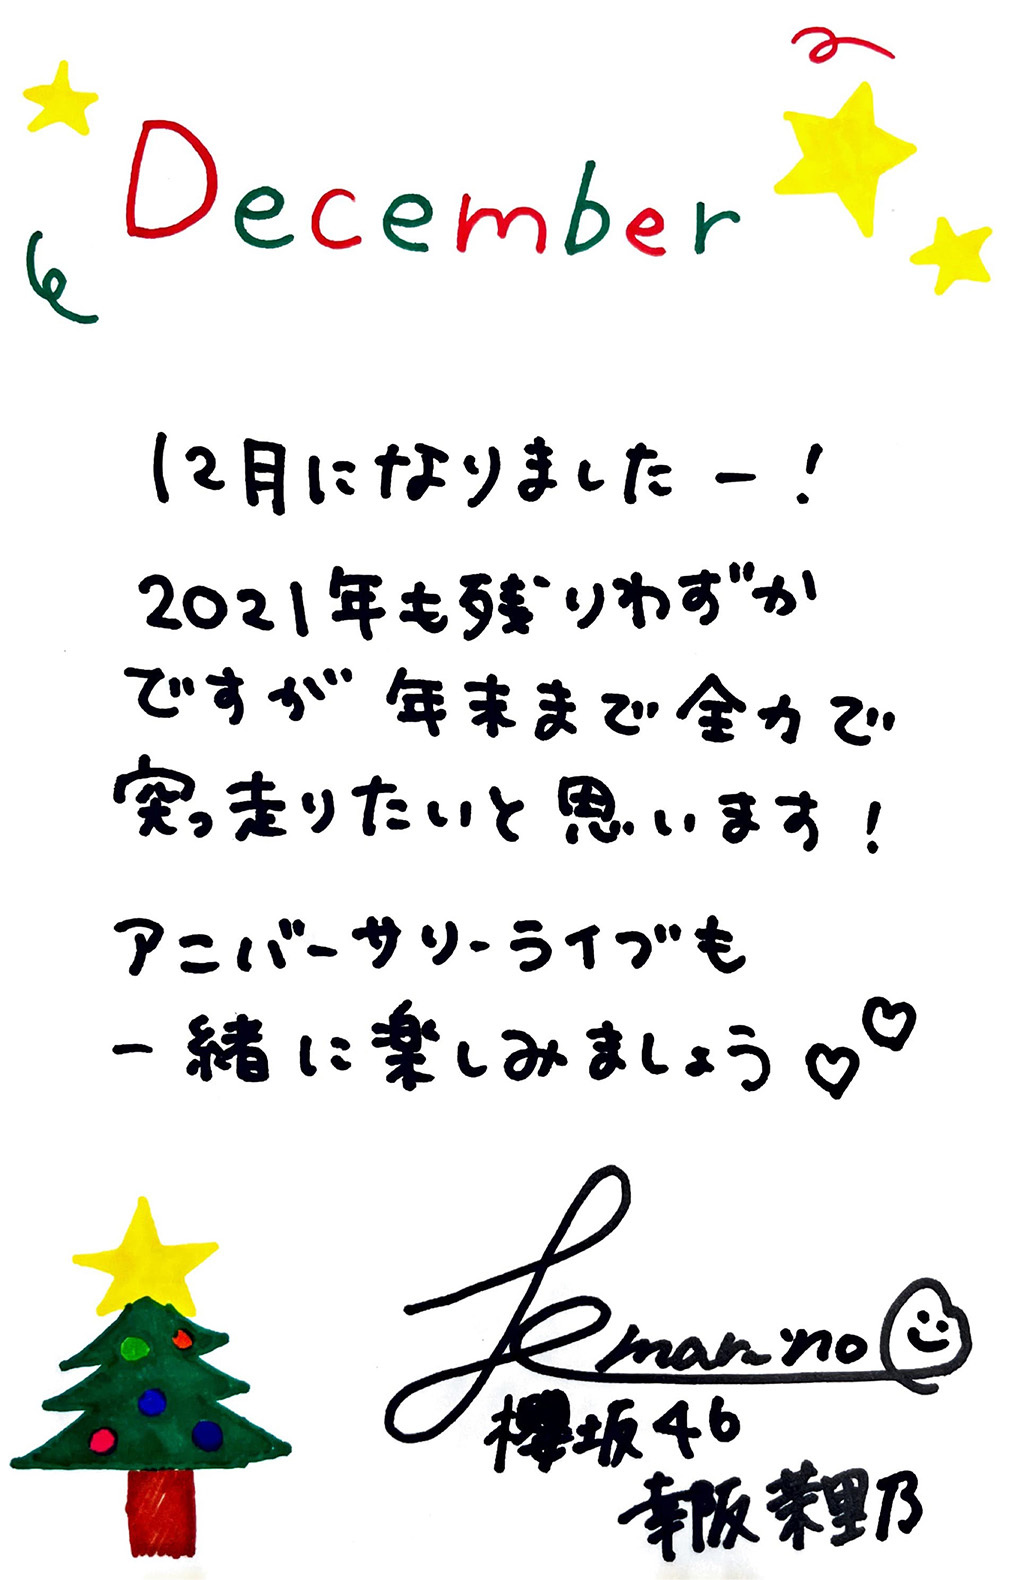 December
12月になりましたー!
2021年も残りわずか
ですが 年末まで全力で
突っ走りたいと思います!
アニバーサリーライブも
一緒に楽しみましょう♡♡
marino
櫻坂46
幸阪茉里乃